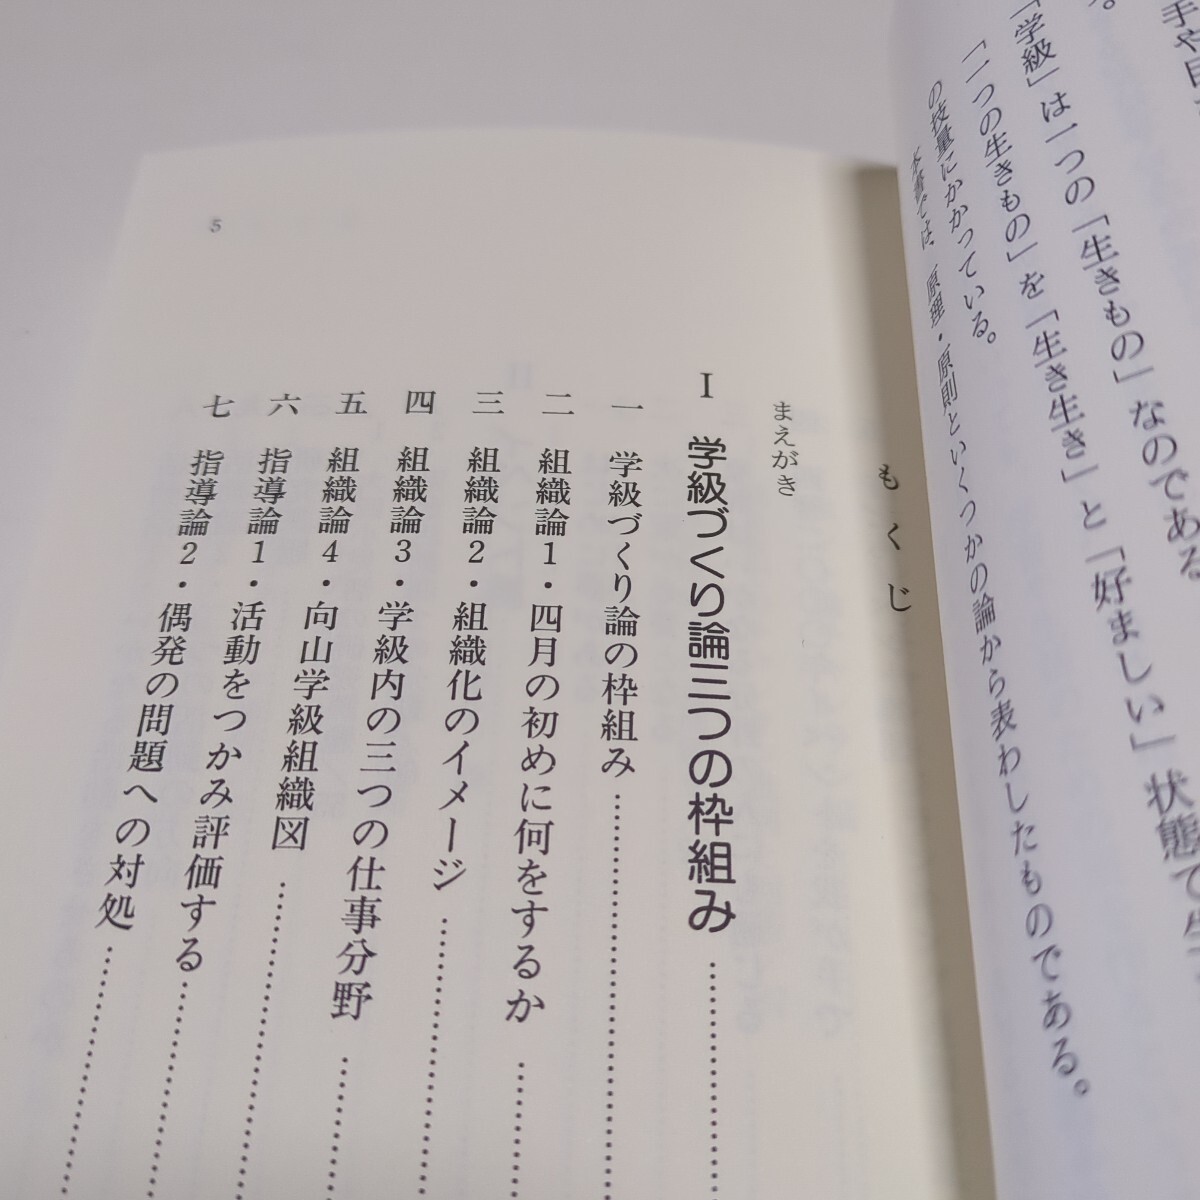 「学級」は一つの「生きもの」なのである
「一つの生きもの」を「生き生き」と「好ましい」状態で生
の技量にかかっている。
本書では、原理・原則といくつかの論から表わしたものである。
もくじ
まえがき
I 学級づくり論三つの枠組み
一 学級づくり論の枠組み
二 組織論1・四月の初めに何をするか
三 組織論2・組織化のイメージ
四 組織論3・学級内の三つの仕事分野
五 組織論4・向山学級組織図
六 指導論1・活動をつかみ評価する
七 指導論2・偶発の問題への対処
5